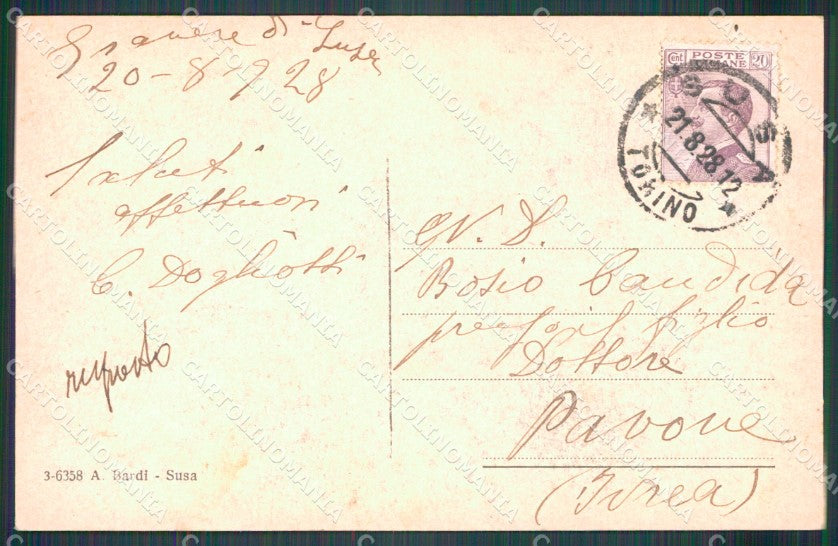 Gravere di Susa
20-8-1928
Saluti
affettuosi
C. Dogliotti
risposto
3-6358 A. Bardi - Susa
POSTE
Cent 20
SUSA
21.8.28.12
TORINO
GV. D.
Bosio Candida
figlio
Dottore
Pavone
(Ivrea)
CARTOLINOMANIA